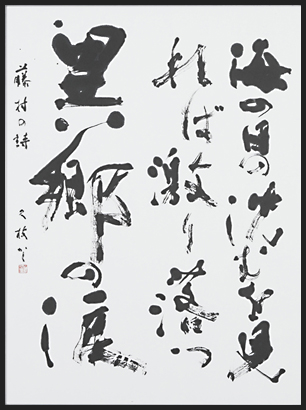 海の日の沈むを見
れば激り落つ
異郷の涙
藤村の詩